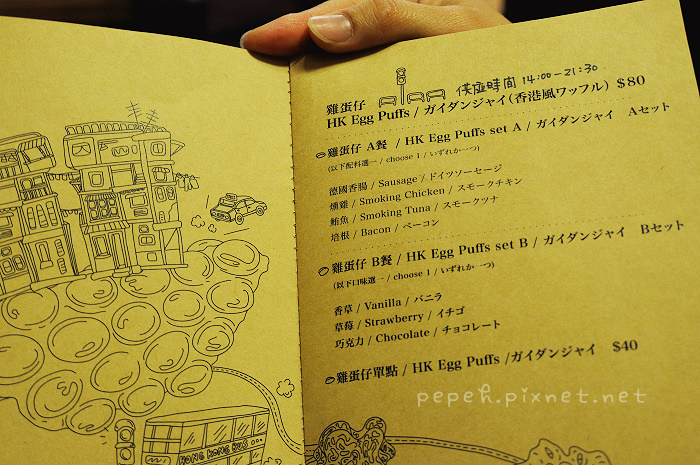 雞蛋仔 供應時間 14:00-21:30
HK Egg Puffs / ガイダンジャイ(香港風ワッフル) $80
雞蛋仔 A餐 / HK Egg Puffs set A / ガイダンジャイ Aセット
(以下配料選一 / choose 1 / いずれか一つ)
德國香腸 / Sausage / ドイツソーセージ
燻雞 / Smoking Chicken / スモークチキン
鮪魚 / Smoking Tuna / スモークツナ
培根 / Bacon / ベーコン
雞蛋仔 B餐 / HK Egg Puffs set B / ガイダンジャイ Bセット
(以下口味選一 / choose 1 / いずれか一つ)
香草 / Vanilla / バニラ
草莓 / Strawberry / イチゴ
巧克力 / Chocolate / チョコレート
雞蛋仔單點 / HK Egg Puffs /ガイダンジャイ $40
pepeh.pixnet.net
HONG KONG BUS